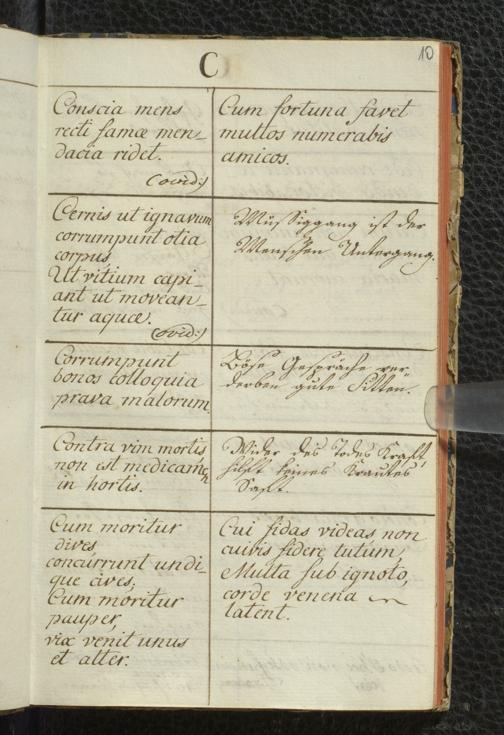 10
C
Conscia mens
recti famæ men-
dacia ridet.
(Ovid:)
Cum fortuna favet
multos numerabis
amicos.
Cernis ut ignavum
corrumpunt otia
corpus,
Ut vitium capi-
ant ut movean-
tur aquæ.
(Ovid:)
Müssiggang ist der
Menschen Untergang.
Corrumpunt
bonos colloquia
prava malorum
Böse Gespräche ver-
derben gute Sitten.
Contra vim mortis
non est medicamen
in hortis.
Wider des Todes Kraft,
hilft keines Krautes
Saft.
Cum moritur
dives,
concurrunt undi-
que cives,
Cum moritur
pauper,
viæ venit unus
et alter.
Cui fidas videas, non
cuivis fidere tutum,
Multa sub ignoto,
corde venena
latent.